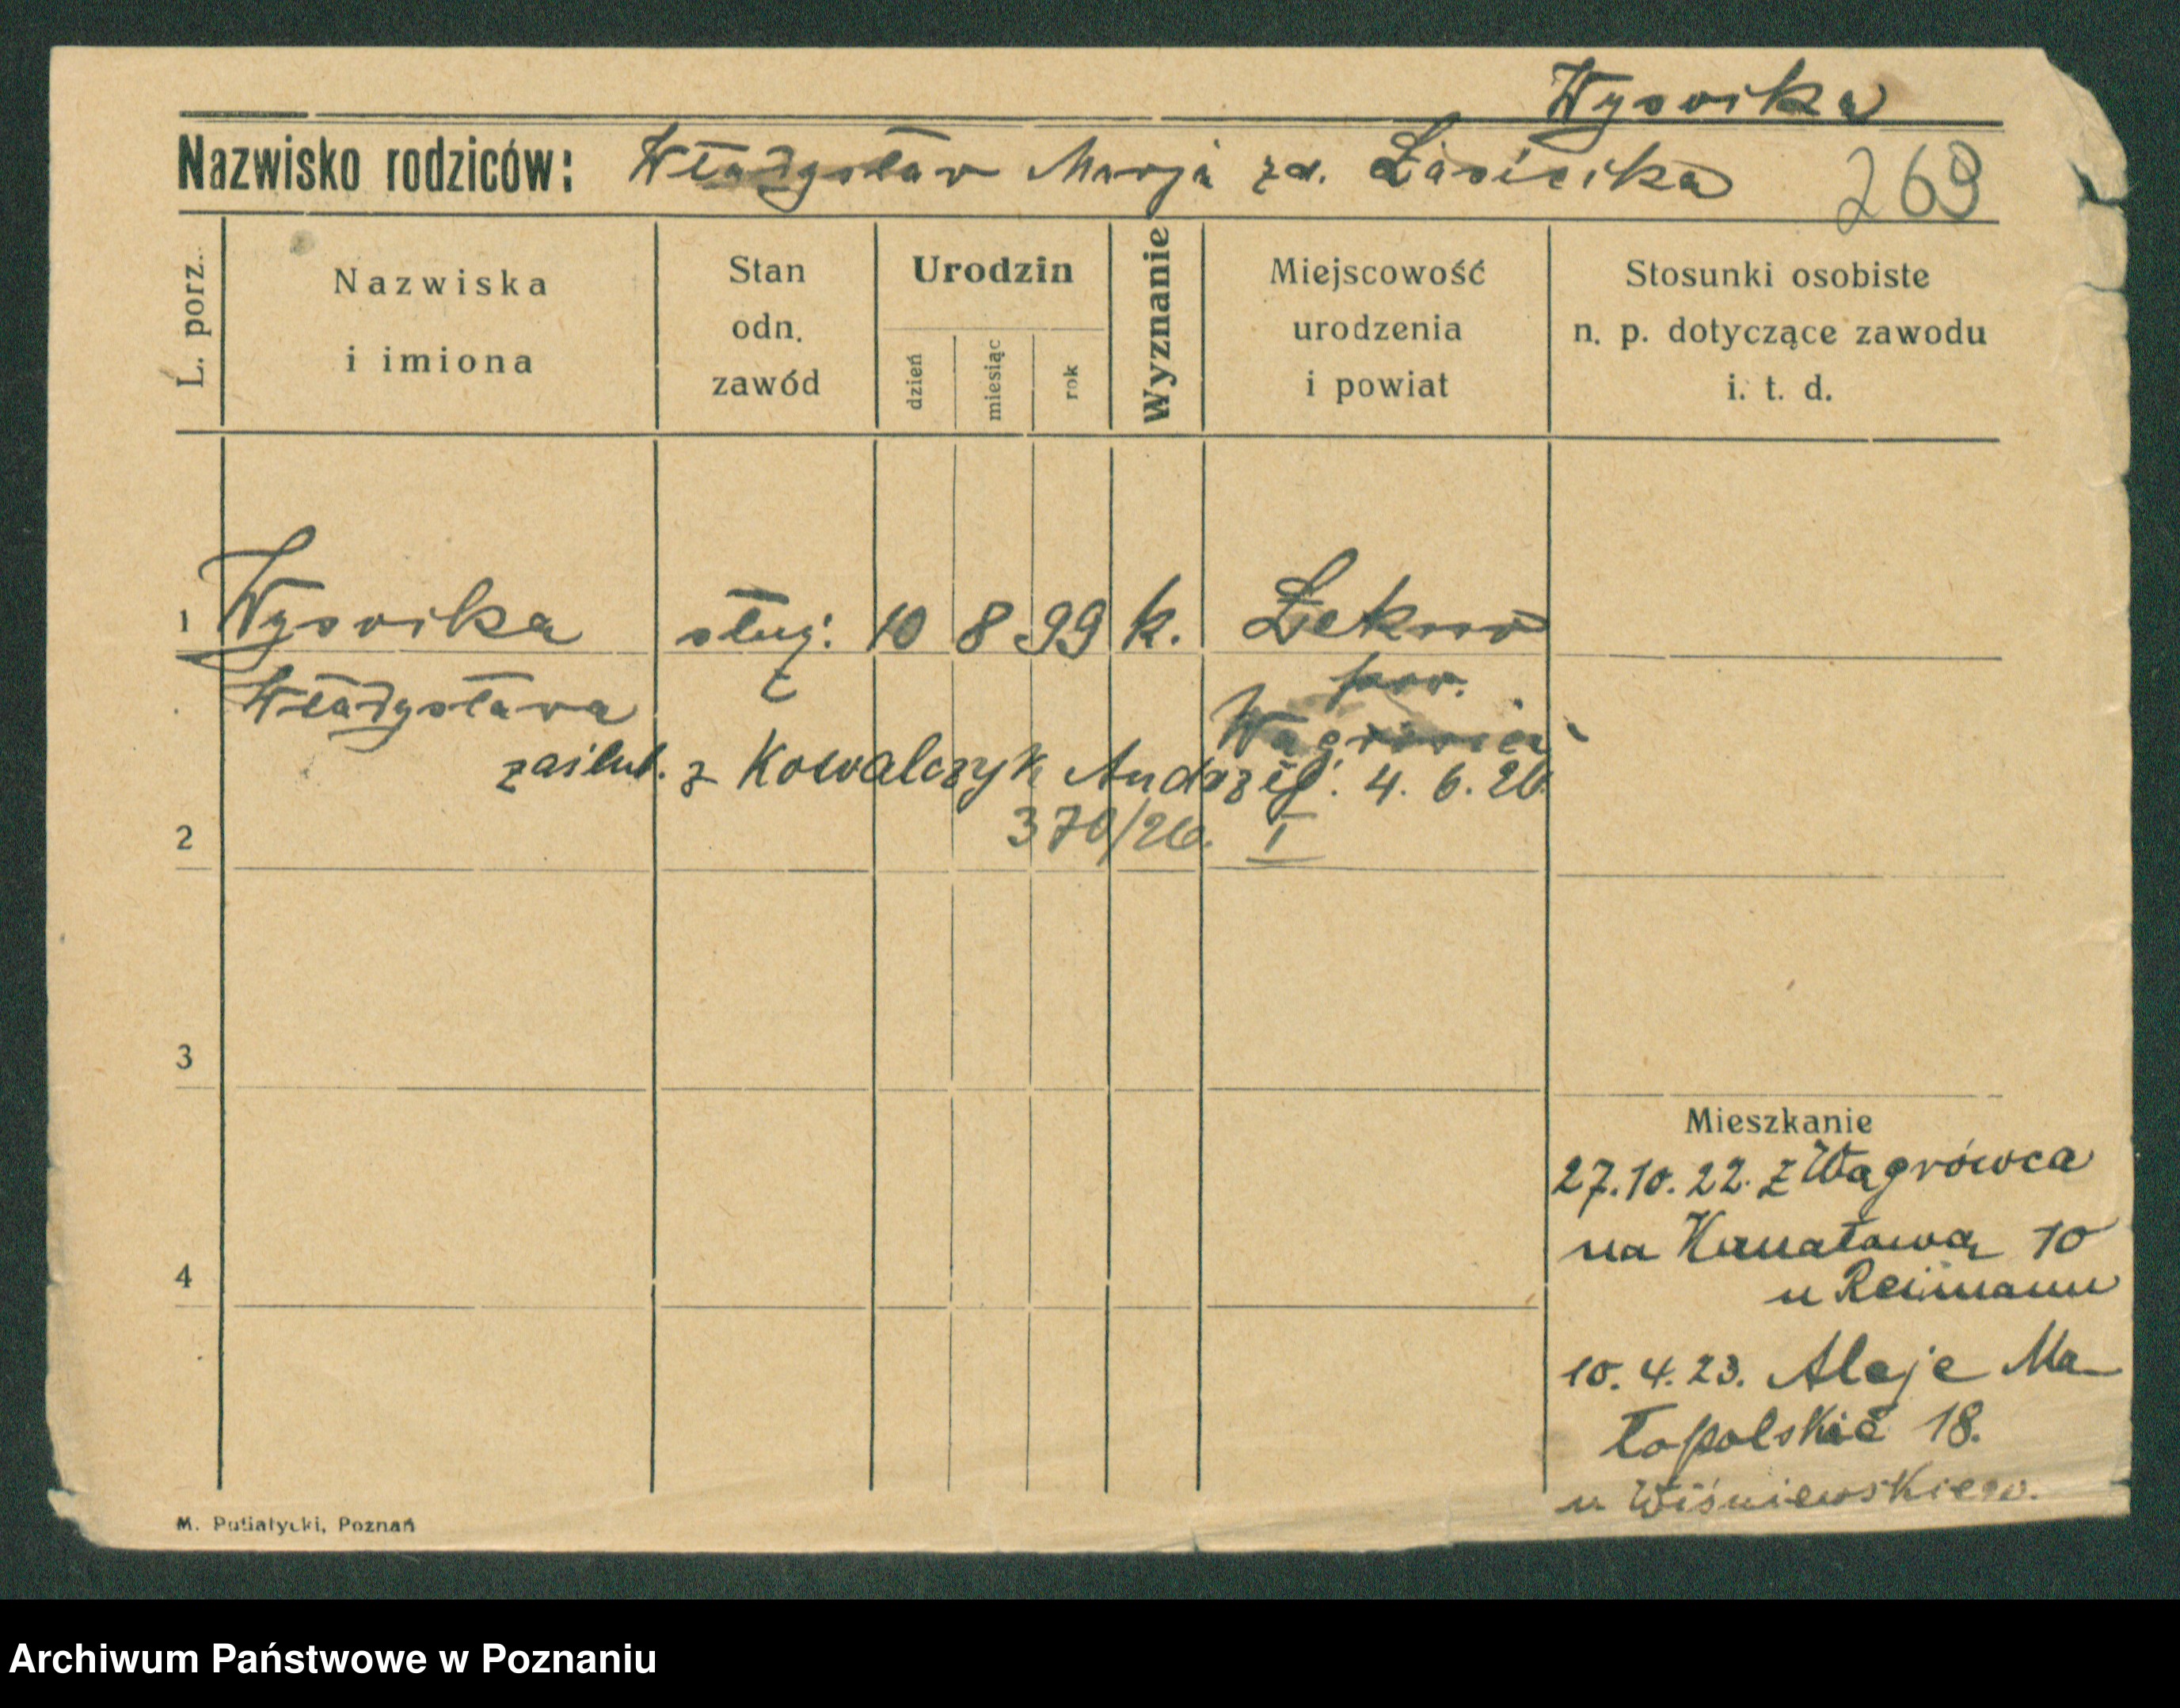 Wysocka
Nazwisko rodziców: Władysław Marja zd. Łasicika
269
L. porz.
Nazwiska
i imiona
Stan
odn.
zawód
Urodzin
dzień
miesiąc
rok
Wyznanie
Miejscowość
urodzenia
i powiat
Stosunki osobiste
n. p. dotyczące zawodu
i. t. d.
1 Wysocka służ. 10 8 99 k. Łekno
Władysława
pow.
Wągrowiec
zaślub. z Kowalczyk Andrzej. 4. 6. 26.
370/26. I
2
3
4
Mieszkanie
27.10.22. z Wągrówca
na Kanałową 10
u Reimann
10.4.23. Aleje Ma-
łopolskie 18.
u Wiśniewskiego.
M. Putiatycki, Poznań
Archiwum Państwowe w Poznaniu